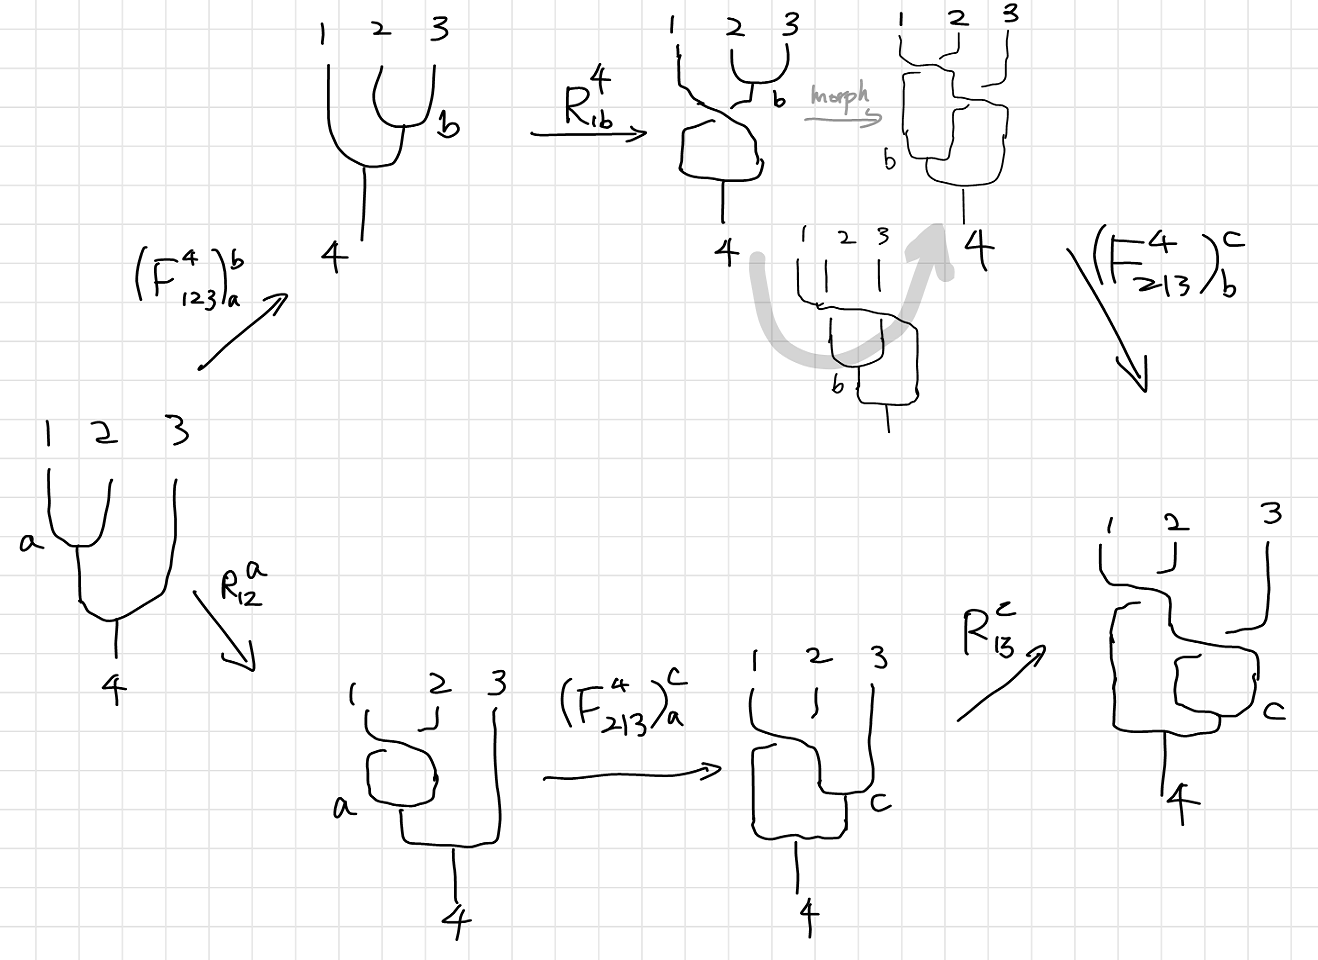 1 2 3
b
4
R^4_{1b}
1 2 3
b
4
morph
1 2 3
b
4
1 2 3
b
(F^4_{123})^b_a
(F^4_{213})^c_b
1 2 3
a
4
R^a_{12}
1 2 3
a
4
(F^4_{213})^c_a
1 2 3
c
4
R^c_{13}
1 2 3
c
4